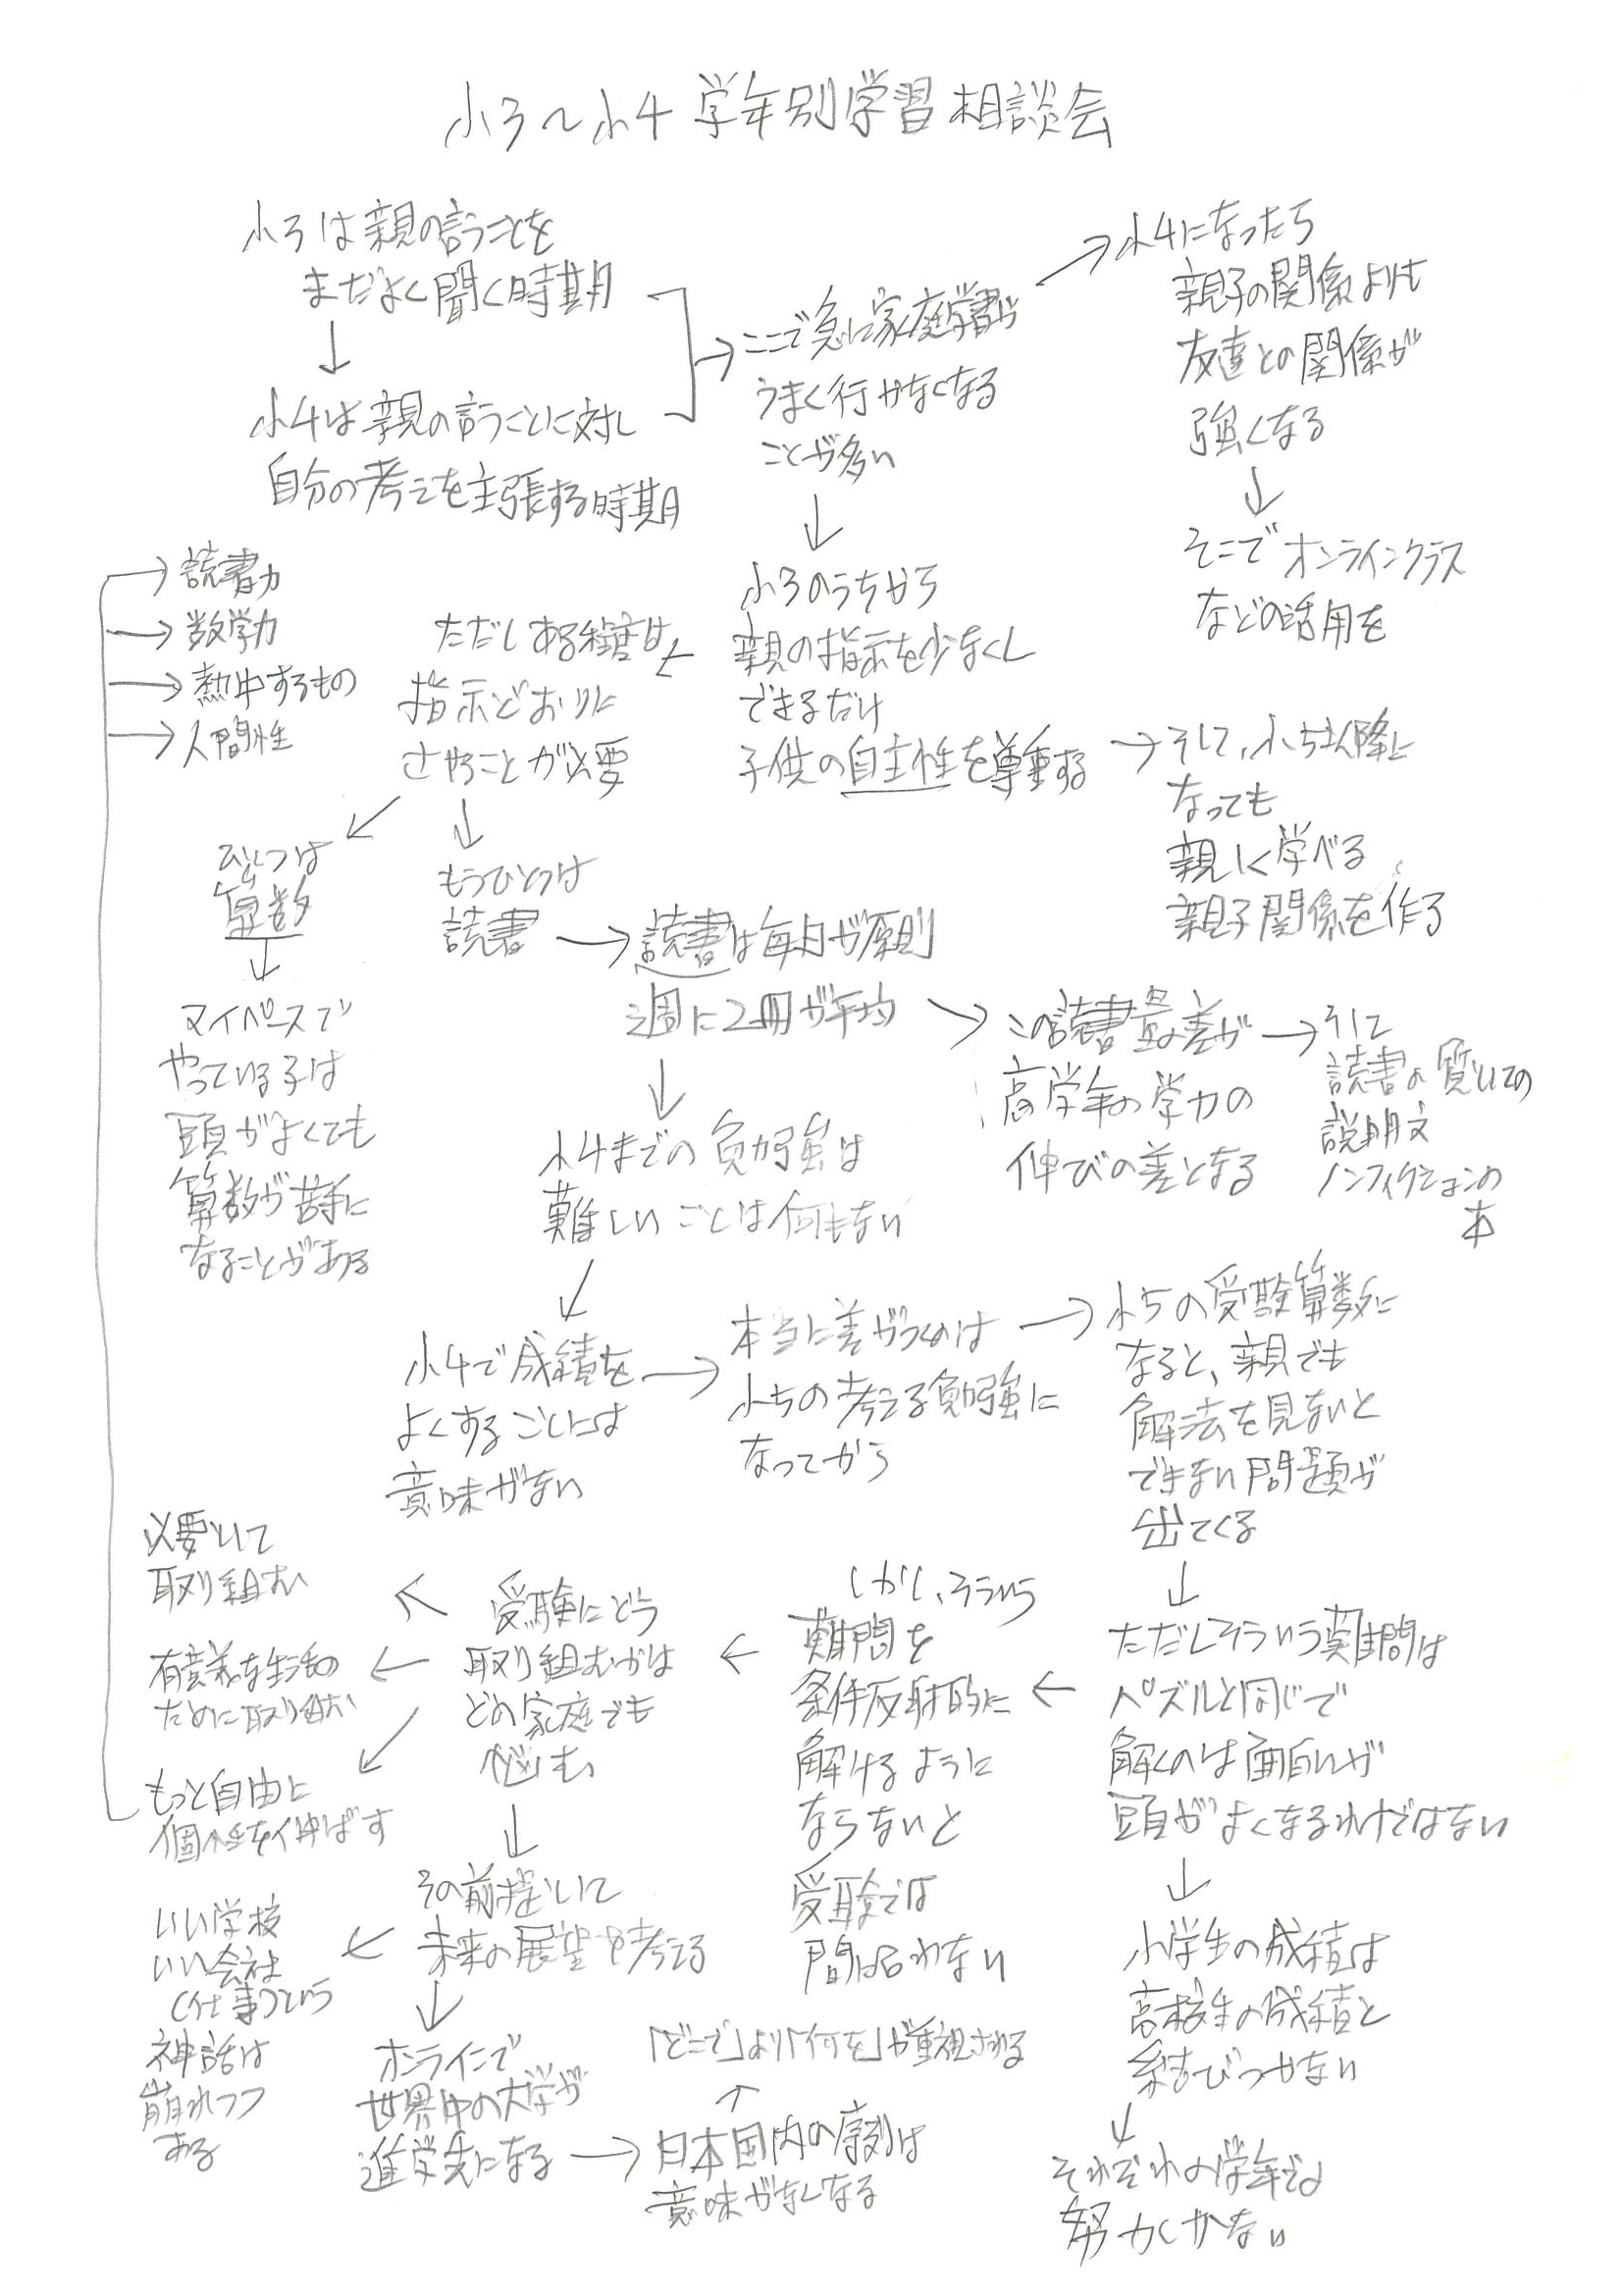 小3〜小4 学年別学習相談会
小3は親の言うことを
まだよく聞く時期
小4は親の言うことに対し
自分の考えを主張する時期
ここで急に家庭学習が
うまく行かなくなる
ことが多い
小4になったら
親子の関係よりも
友達との関係が
強くなる
そこでオンラインクラス
などの活用を
小3のうちから
親の指示を少なくし
できるだけ
子供の自主性を尊重する
そして、小5以降に
なっても
親しく学べる
親子関係を作る
ただしある程度は
指示どおりに
さやることが必要
ひとつは
算数
マイペースで
やっている子は
頭がよくても
算数が苦手に
なることがある
もうひとつは
読書
読書は毎日が原則
週に2冊が平均
この読書量の差が
高学年の学力の
伸びの差となる
そして
読書の質としての
説明文
ノンフィクションの
本
小4までの勉強は
難しいことは何もない
小4で成績を
よくすることには
意味がない
本当に差がつくのは
小5の考える勉強に
なってから
小5の受験算数に
なると、親でも
解法を見ないと
できない問題が
出てくる
ただしそういう難問は
パズルと同じで
解くのは面白いが
頭がよくなるわけではない
小学生の成績は
高校生の成績と
結びつかない
それぞれの学年での
努力しかない
しかし、そういう
難問を
条件反射的に
解けるように
ならないと
受験では
間に合わない
受験にどう
取り組むかは
どの家庭でも
悩む
必要として
取り組む
有意義な生活の
ために取り組む
もっと自由に
個性を伸ばす
読書力
数学力
熱中するもの
人間性
その前提として
未来の展望を考える
いい学校
いい会社
(仕事)という
神話は
崩れつつ
ある
オンラインで
世界中の大学が
進学先になる
日本国内の序列は
意味がなくなる
「どこで」より「何を」が重視される